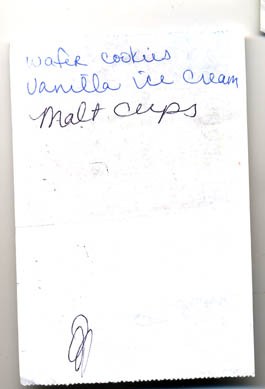 wafer cookies
Vanilla ice cream
Malt cups